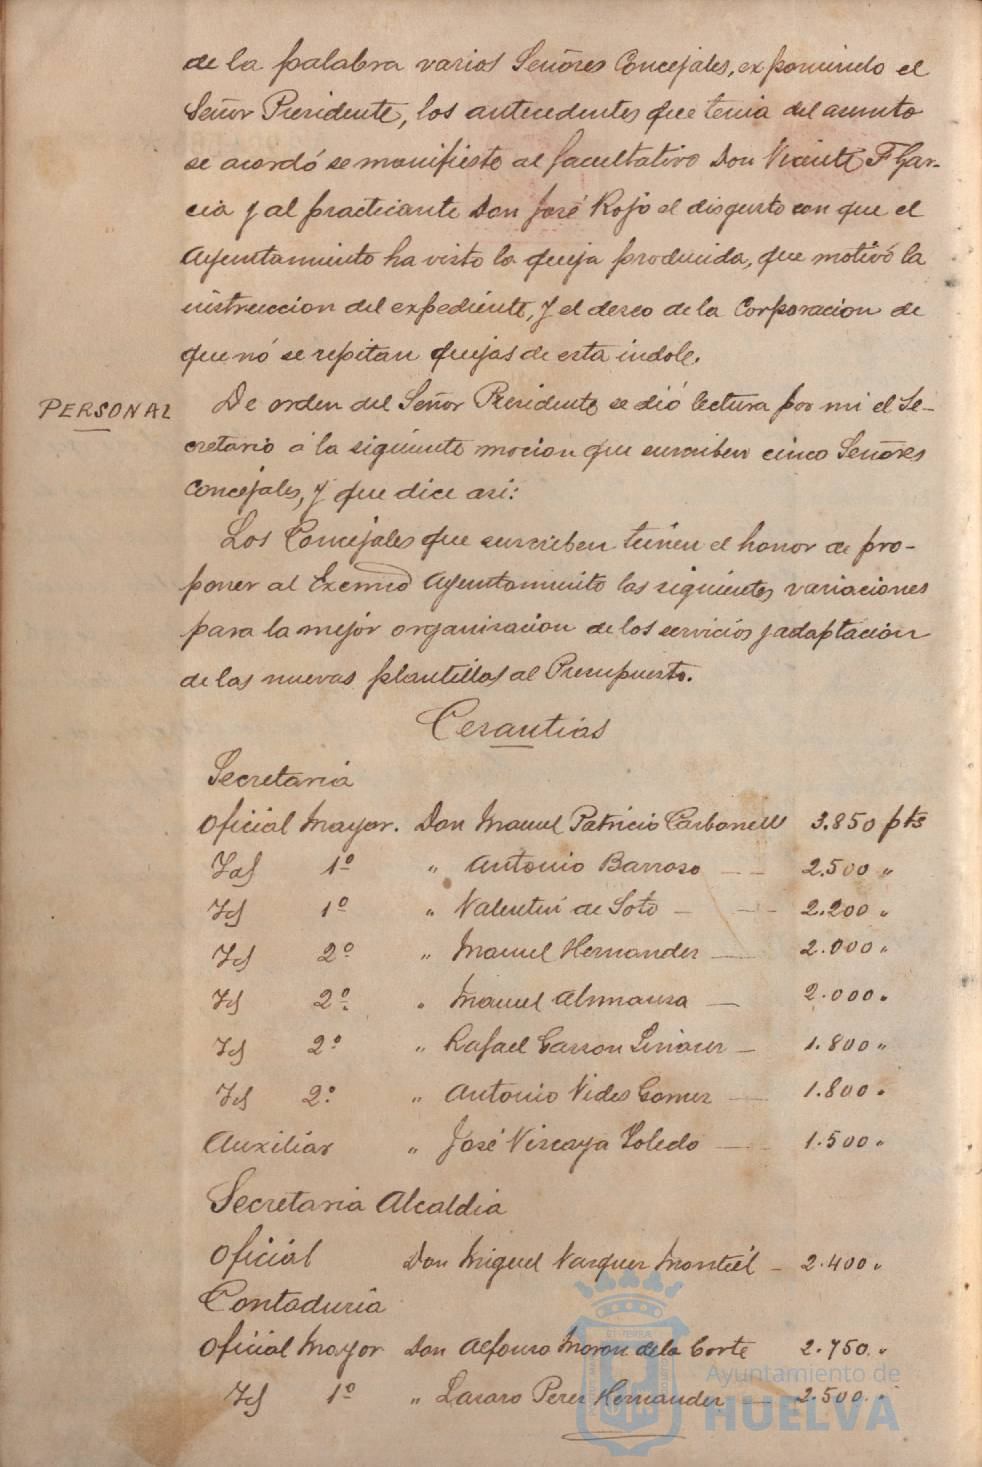 de la palabra varios Señores Concejales, exponiendo el
Señor Presidente, los antecedentes que tenia del asunto
se acordó se manifieste al facultativo Don Vicente F Gar-
cia y al practicante Don José Rojo el disgusto con que el
Ayuntamiento ha visto la queja producida, que motivó la
instruccion del expediente, y el deseo de la Corporacion de
que nó se repitan quejas de esta indole.
PERSONAL
De orden del Señor Presidente se dió lectura por mi el Se-
cretario á la siguiente mocion que suscriben cinco Señores
Concejales, y que dice asi:
Los Concejales que suscriben tienen el honor de pro-
poner al Excmo Ayuntamiento las siguientes variaciones
para la mejor organizacion de los servicios y adaptacion
de las nuevas plantillas al Presupuesto.
Cesantias
Secretaria
Oficial Mayor. Don Manuel Patricio Carbonell 3.850 pts
Id 1º " Antonio Barroso -- 2.500 "
Id 1º " Valentin de Soto -- 2.200 "
Id 2º " Manuel Hernandez - 2.000 "
Id 2º " Manuel Almansa - 2.000 "
Id 2º " Rafael Garzon Linares - 1.800 "
Id 2º " Antonio Vides Gomez - 1.800 "
Auxiliar " José Vizcaya Toledo - 1.500 "
Secretaria Alcaldia
Oficial Don Miguel Vazquez Montiel - 2.400 "
Contaduria
Oficial Mayor Don Alfonso Moron de la Corte 2.750. "
Id 1º " Lazaro Perez Hernandez - 2.500. "
Ayuntamiento de
HUELVA